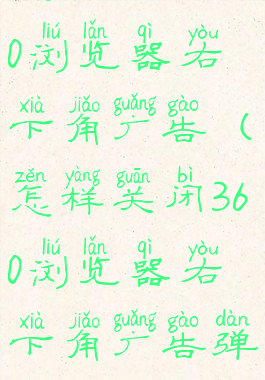 liú lǎn qì yòu
0浏览器右
xià jiǎo guǎng gào
下角广告（
zěn yàng guān bì
怎样关闭36
liú lǎn qì yòu
0浏览器右
xià jiǎo guǎng gào dàn
下角广告弹